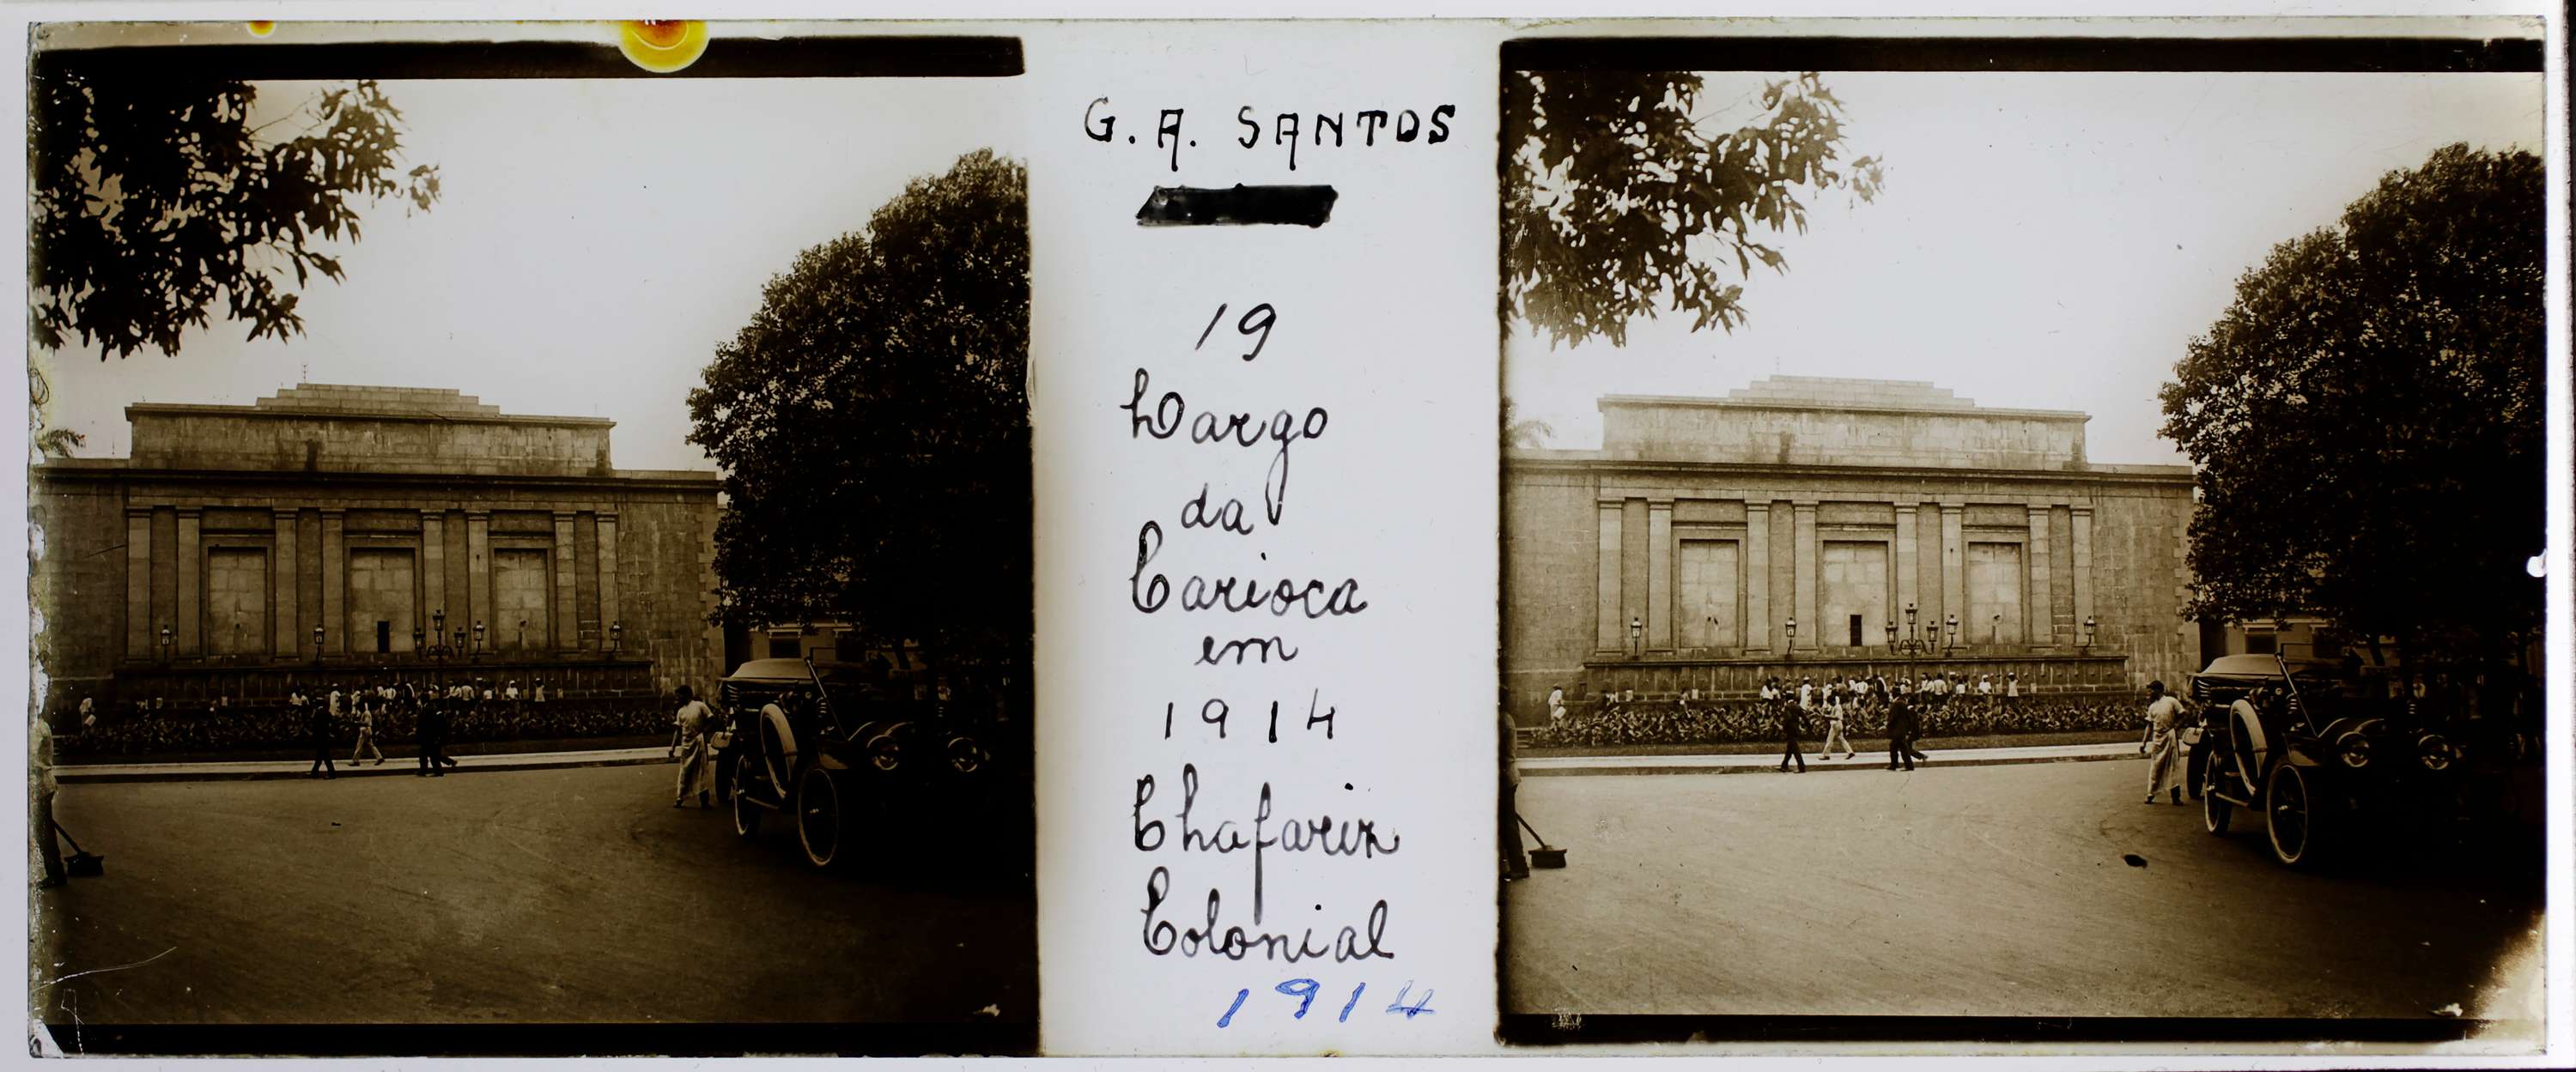 G. A. SANTOS
19
Largo
da
Carioca
em
1914
Chafariz
Colonial
1914